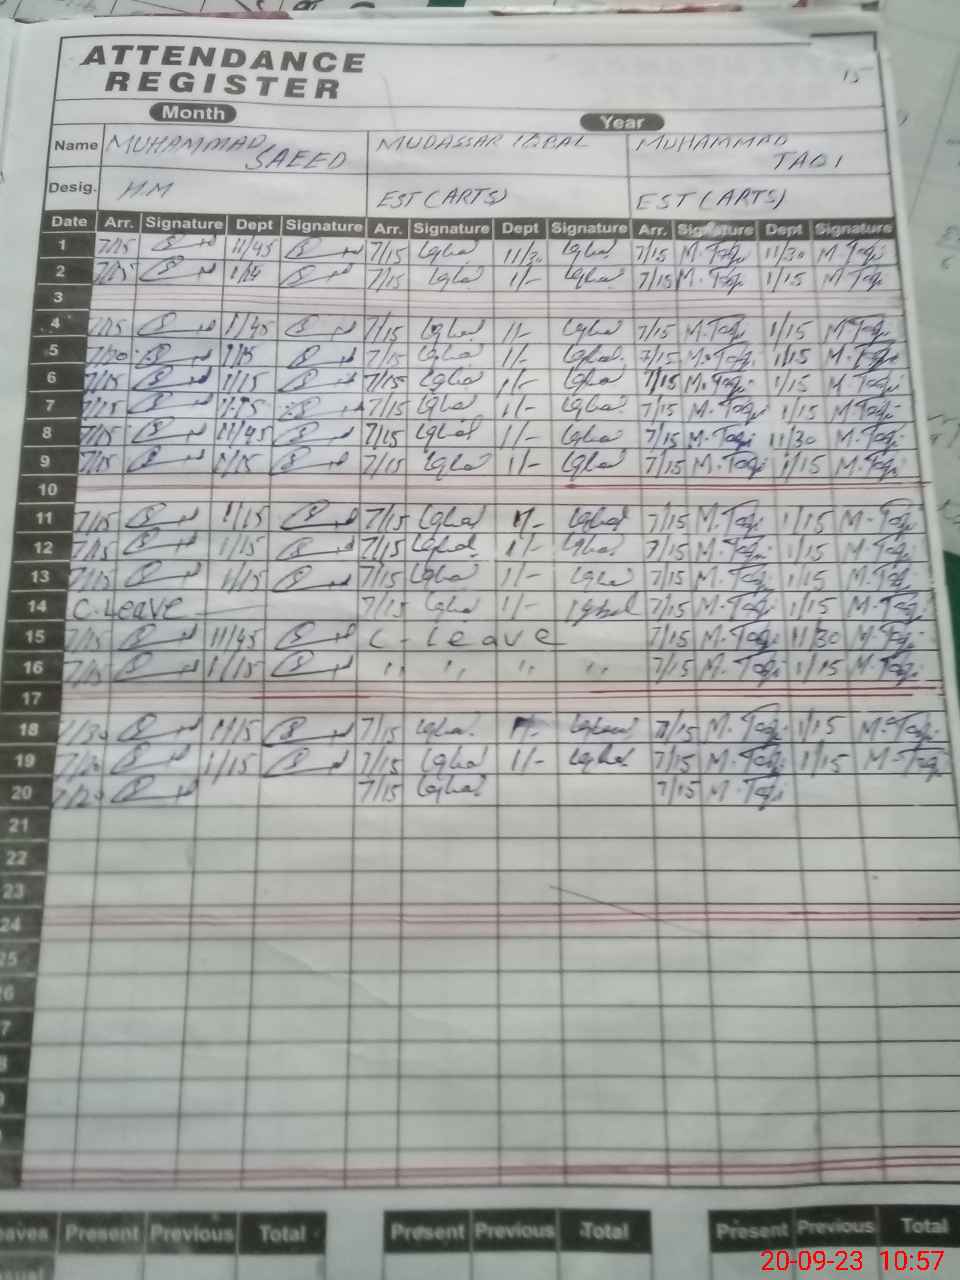 ATTENDANCE
REGISTER
15
Month Year
Name MUHAMMAD SAEED MUDASSAR IQBAL MUHAMMAD TAQI
Desig. H.M EST (ARTS) EST (ARTS)
Date Arr. Signature Dept Signature Arr. Signature Dept Signature Arr. Signature Dept Signature
1 7/15 11/45 7/15 Iqbal 11/30 Iqbal 7/15 M.Taqi 11/30 M Taqi
2 7/15 7/15 Iqbal 1/- Iqbal 7/15 M.Taqi 1/15 M Taqi
3
4 7/15 1/45 7/15 Iqbal 1/- Iqbal 7/15 M.Taqi 1/15 M Taqi
5 7/15 Iqbal 1/- Iqbal 7/15 M.Taqi 1/15 M.Taqi
6 7/15 1/15 7/15 Iqbal 1/- Iqbal 7/15 M.Taqi 1/15 M.Taqi
7 7/15 7/15 Iqbal 1/- Iqbal 7/15 M.Taqi 1/15 M.Taqi
8 7/15 11/45 7/15 Iqbal 1/- Iqbal 7/15 M.Taqi 11/30 M.Taqi
9 7/15 1/15 7/15 Iqbal 1/- Iqbal 7/15 M.Taqi 1/15 M.Taqi
10
11 7/15 1/15 7/15 Iqbal 1/- Iqbal 7/15 M.Taqi 1/15 M.Taqi
12 7/15 1/15 7/15 Iqbal 1/- Iqbal 7/15 M.Taqi 1/15 M.Taqi
13 7/15 1/15 7/15 Iqbal 1/- Iqbal 7/15 M.Taqi 1/15 M.Taqi
14 C.Leave 7/15 Iqbal 1/- Iqbal 7/15 M.Taqi 1/15 M.Taqi
15 7/15 11/45 C-Leave 7/15 M.Taqi 11/30 M.Taqi
16 7/15 1/15 " " " " 7/15 M.Taqi 1/15 M.Taqi
17
18 1/15 7/15 Iqbal 1/- Iqbal 7/15 M.Taqi 1/15 M.Taqi
19 1/15 7/15 Iqbal 1/- Iqbal 7/15 M.Taqi 1/15 M.Taqi
20 7/15 Iqbal 7/15 M.Taqi
21
22
23
24
25
Present Previous Total Present Previous Total Present Previous Total
20-09-23 10:57